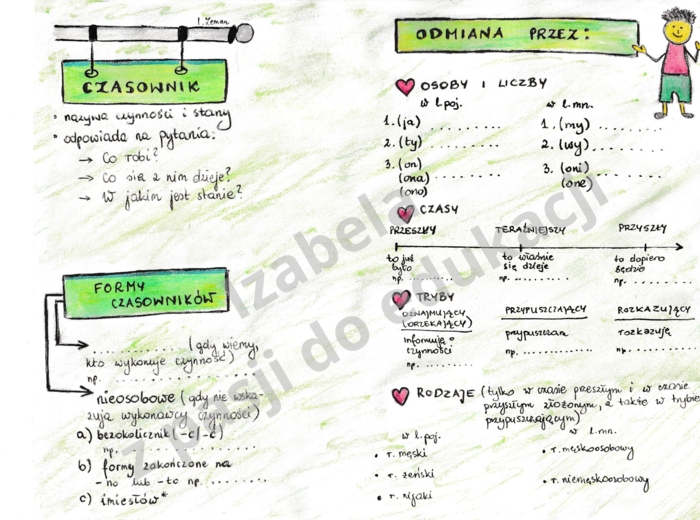 I. Zeman
CZASOWNIK
• nazywa czynności i stany
• odpowiada na pytania:
→ Co robi?
→ Co się z nim dzieje?
→ W jakim jest stanie?
FORMY
CZASOWNIKÓW
.............. (gdy wiemy,
kto wykonuje czynność)
np. ..................
nieosobowe (gdy nie wska-
zują wykonawcy czynności)
a) bezokolicznik (-c/-ć)
np. ..................
b) formy zakończone na
-no lub -to np. .........
c) imiesłów*
ODMIANA PRZEZ:
OSOBY I LICZBY
w l. poj. w l. mn.
1. (ja) ............ 1. (my) .........
2. (ty) ............ 2. (wy) .........
3. (on) ............ 3. (oni) .........
(ona) (one)
(ono)
CZASY
PRZESZŁY TERAŹNIEJSZY PRZYSZŁY
to już to właśnie to dopiero
było się dzieje będzie
np. .......... np. .......... np. ..........
TRYBY
OZNAJMUJĄCY PRZYPUSZCZAJĄCY ROZKAZUJĄCY
(ORZEKAJĄCY)
informuję o przypuszczam rozkazuję
czynności np. .......... np. ..........
np. ..........
RODZAJE (tylko w czasie przeszłym i w czasie
przyszłym złożonym, a także w trybie
przypuszczającym)
w l. poj. w l. mn.
• r. męski • r. męskoosobowy
• r. żeński • r. niemęskoosobowy
• r. nijaki
Izabela
Z pasji do edukacji